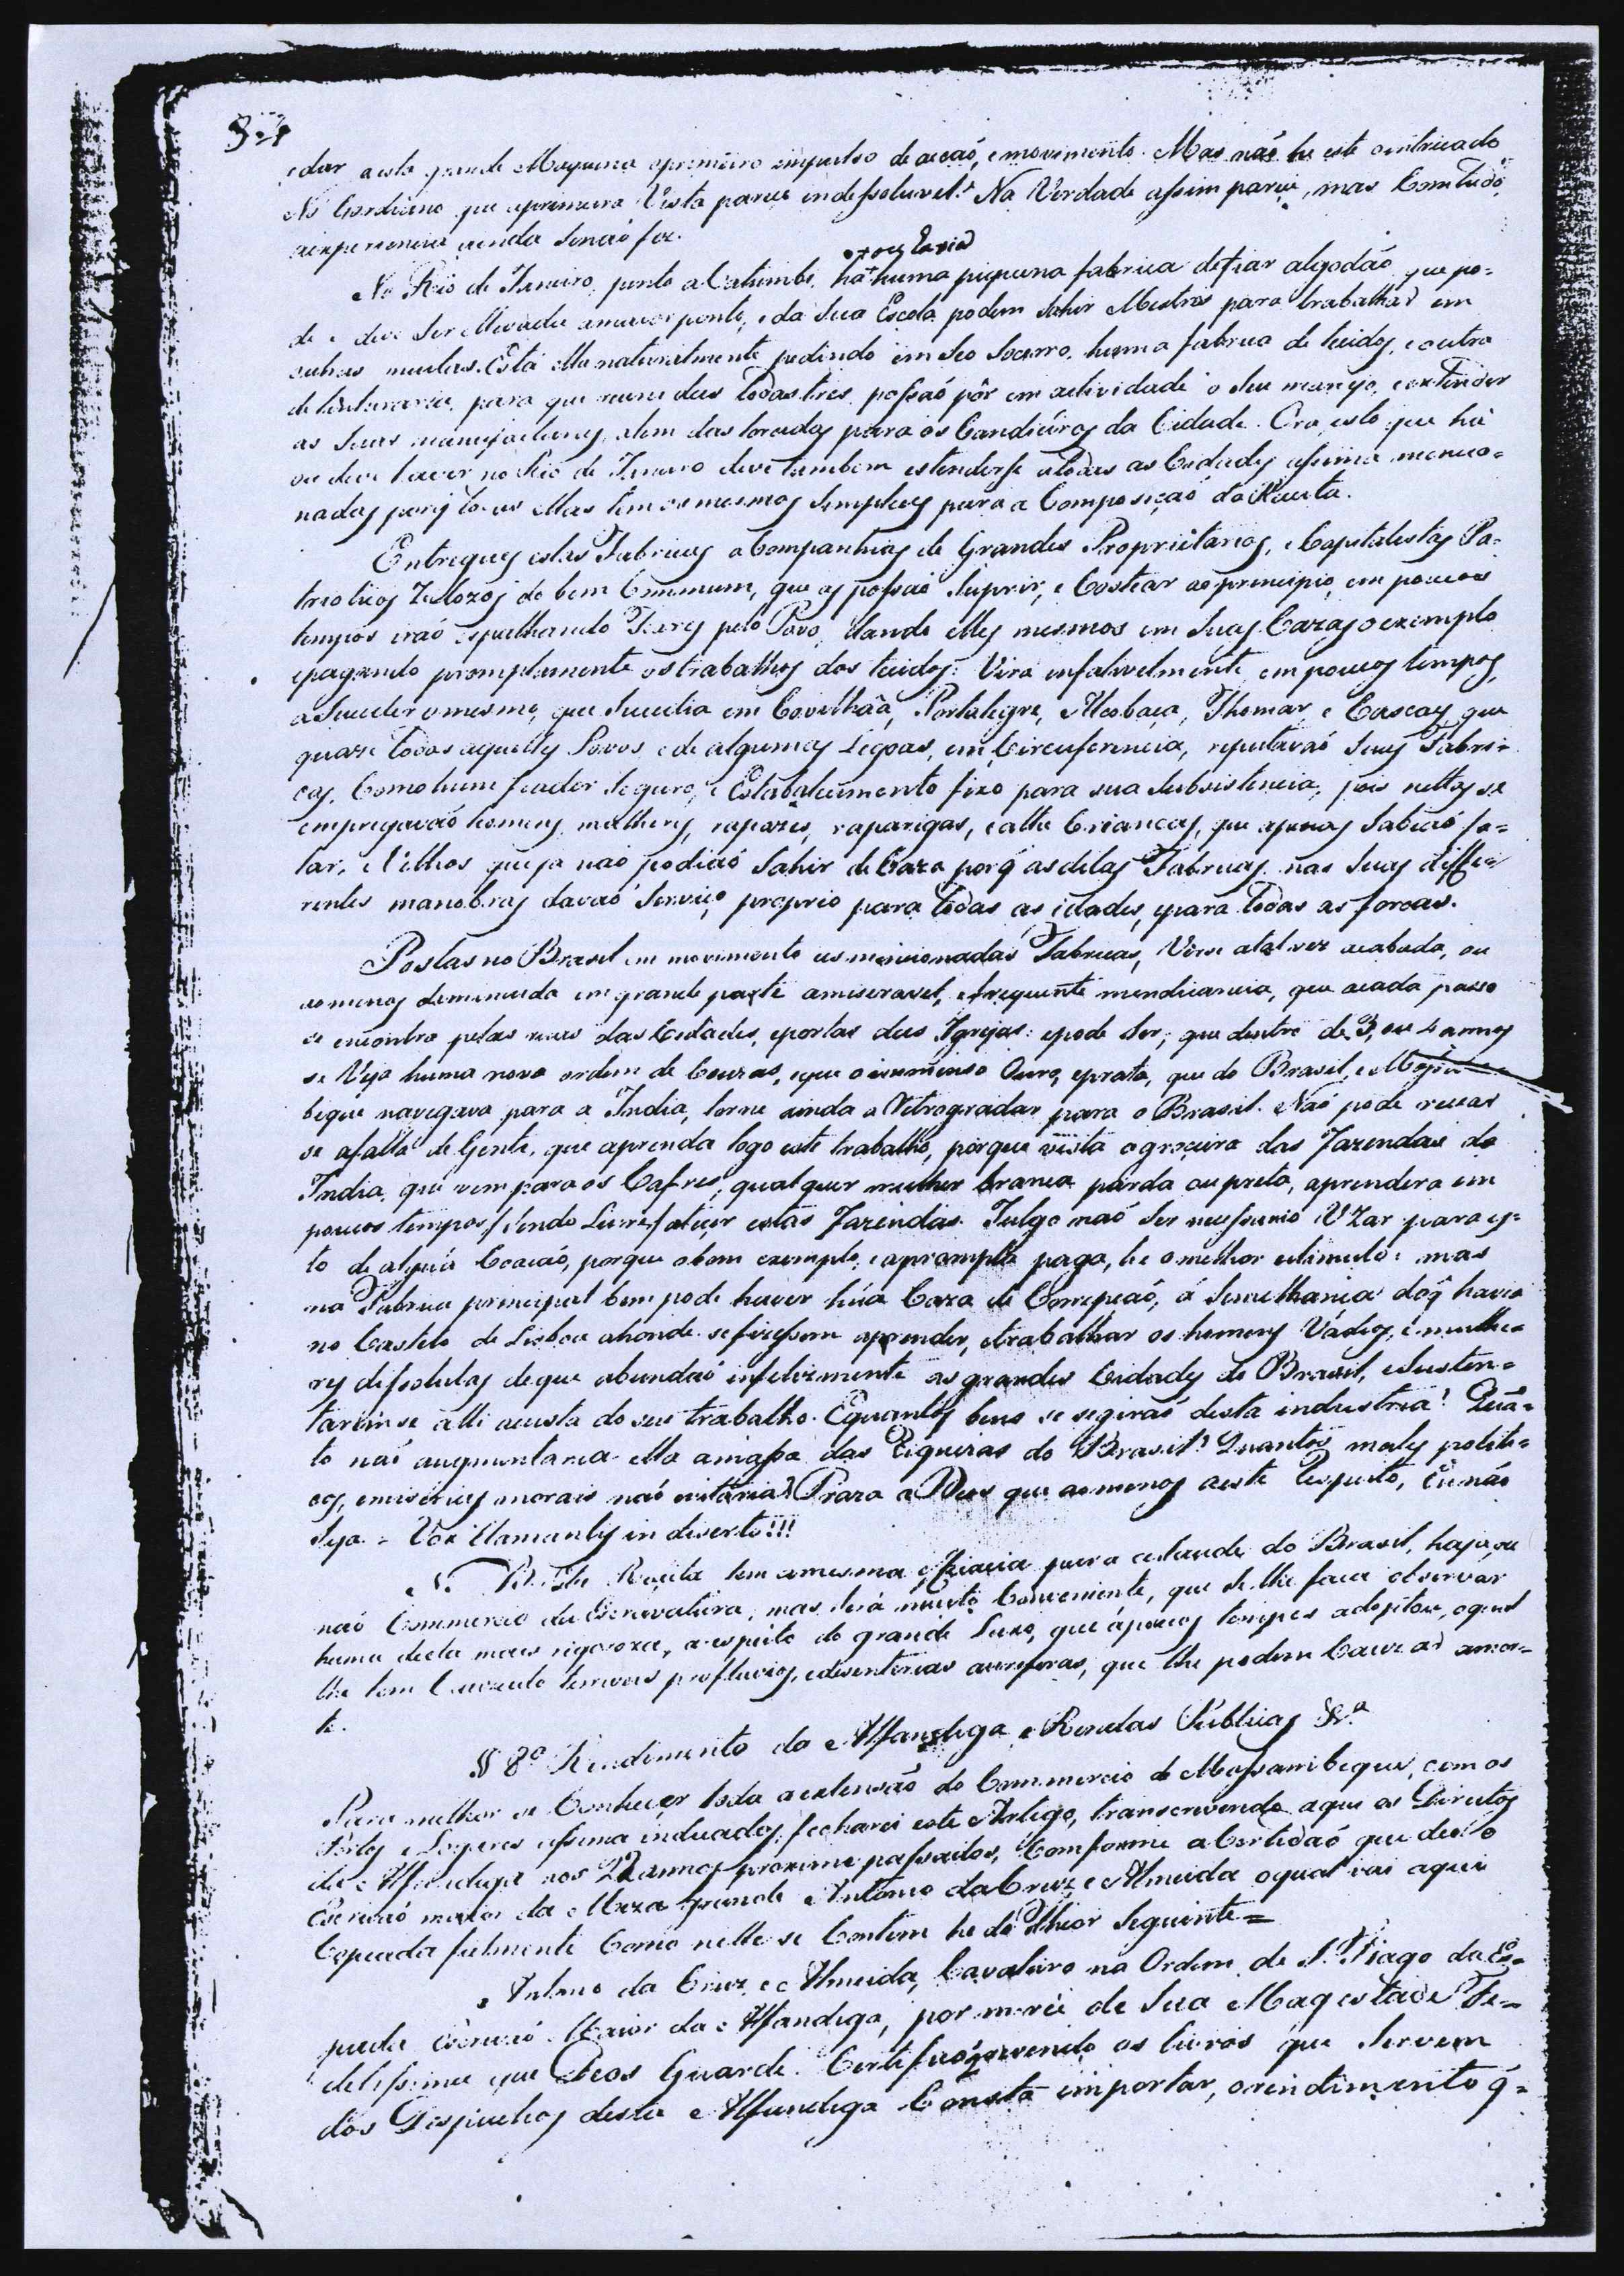 e dar a esta grande Maquina o primeiro impulso de acçaó, e movimento. Mas naó he este o intricado
Nó Gordiano que a primeira Vista parece indessoluvel? Na Verdade assim parece, mas Comtudo
a experiencia ainda senaó fez.
No Rio de Janeiro, junto a Catumbi, há huma piquena fabrica defiar algodaõ que po=
de e deve Ser Elevada a maior ponto, e da Sua Escola podem Sahir Mestres para trabalhar em
outras muitas. Está ella naturalmente pedindo em Seo Socorro, huma fabrica de tecidos, e outra
de tinturaria, para que reunidas todas tres, possaó pôr em actividade o Seu manejo, e extender
as Suas manufacturas, alem das torcidas para os Candieiros da Cidade. Ora, isto que há
ou deve haver no Rio de Janeiro deve tambem estenderse a todas as Cidades assima mencio=
nadas pois todas ellas tem os mesmos Simplices para a Composiçaó da Receita.
Entregues estas Fabricas a Companhias de Grandes Proprietarios, e Capitalistas Pa=
trioticos Zelozos do bem Commum, que as possaó Suprir, e Costear ao principio, em poucos
tempos iraó espalhando Teares pelo Povo, dando elles mesmos em Suas Cazas o exemplo
e pagando promptamente os trabalhos dos tecidos. Virá infalivelmente, em poucos tempos,
a Suceder o mesmo, que Sucedia em Covilhãa, Portalegre, Alcobaça, Thomar, e Cascaes, que
quaze todos aquelles Povos e de algumas Legoas, em Circunferencia, reputavaó Suas Fabri=
cas, Como hum fiador Seguro, e Estabalecimento fixo para sua Subsistencia, pois nellas se
empregavaó homens, mulheres, rapazes, raparigas, e athe Crianças, que apenas Sabiaó fa=
lar, e Velhos que ja naó podiaó Sahir de Caza porq̃ as ditas Fabricas nas Suas diffe=
rentes manobras davaó Serviço proprio para todas as idades, e para todas as forcas.
Postas no Brasil em movimento as mencionadas Fabricas, Verse a tal vez acabada, ou
ao menos demenuida em grande parte a miseravel, e frequente mendicancia, que a cada passo
se encontra pelas ruas das Cidades, e portas das Igrejas: e pode Ser, que dentro de 3, ou 4 annos
se Veja huma nova ordem de Couzas, e que o immenso Ouro, e prata, que do Brasil, e Mossa
bique navegava para a India, torne ainda a Retrogradar para o Brasil. Naó pode recear
se a falta de Gente, que aprenda logo este trabalho, porque vista a groçeira das Fazendas da
India, que vem para os Cafres, qualquer mulher branca parda ou preta, aprendera em
poucos tempos / Sendo Livre / a tecer estas Fazendas. Julgo naó Ser necessario UZar para es=
to de alguã Coaçaó, porque o bom exemplo, e a prompta paga, he o melhor estimulo: mas
na Fabrica principal bem pode haver hũa Caza de Correpçaó, á Semelhança dó q̃ havia
no Castelo de Lisboa ahonde se fizessem aprender, e trabalhar os homens Vádios, e mulhe=
res dissolutas de que abundaó infelizmente as grandes Cidades do Brasil, e Susten=
tarem se alli a custa do seu trabalho. E quantos bens se segiraó desta industria! Quã=
to naó augmentaria ella a massa das Riquezas do Brasil? Quantos males politi=
cos, e miserias morais naó evitaria? Praza a Deos que ao menos a este Respeito, Eu naó
Seja = Vox Clamantis in diserto!!!
N. B. Esta Receita tem a mesma efficacia para a Saude do Brasil, haja, ou
naó Commercio da Escravatura, mas Será muito Conveniente, que Se lhe faca observar
huma dieta mais rigoroza, a respeito do grande Luxo, que á poucos tempos adoptou, o qual
lhe tem Cauzado terriveis profluvios, e desenterias auriferas, que lhe podem Cauzar a mor=
te.
§ 8º Rendimento da Alfandega e Rendas Publicas &.ª
Para melhor se Conhecer toda a extensaõ do Commercio de Mossambeque, com os
Pórtos e Logares assima indicados, fecharei este Artigo, transcrevendo aqui os Direitos
da Alfandega nos 22 annos proximo passados, Comforme a Certidaó que deo o
Escrivaó maior da Meza grande Antonio da Cruz, e Almeida o qual vai aqui
Copeada fielmente Como nella se Contem he do Theor Seguinte =
Antonio da Cruz, e Almeida, Cavaleiro na Ordem de S. Tiago da Es=
pada Escrivaó Maior da Alfandega, por merce de Sua Magestade Fe=
delissima que Deos Guarde. Certefico, que vendo os livros que Servem
dos Despachos desta Alfandega Consta importar, o rendimento q̃ =